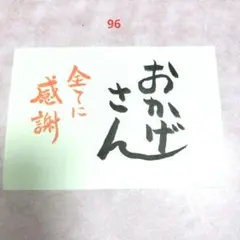 96
おかげ
さん
全てに
感謝